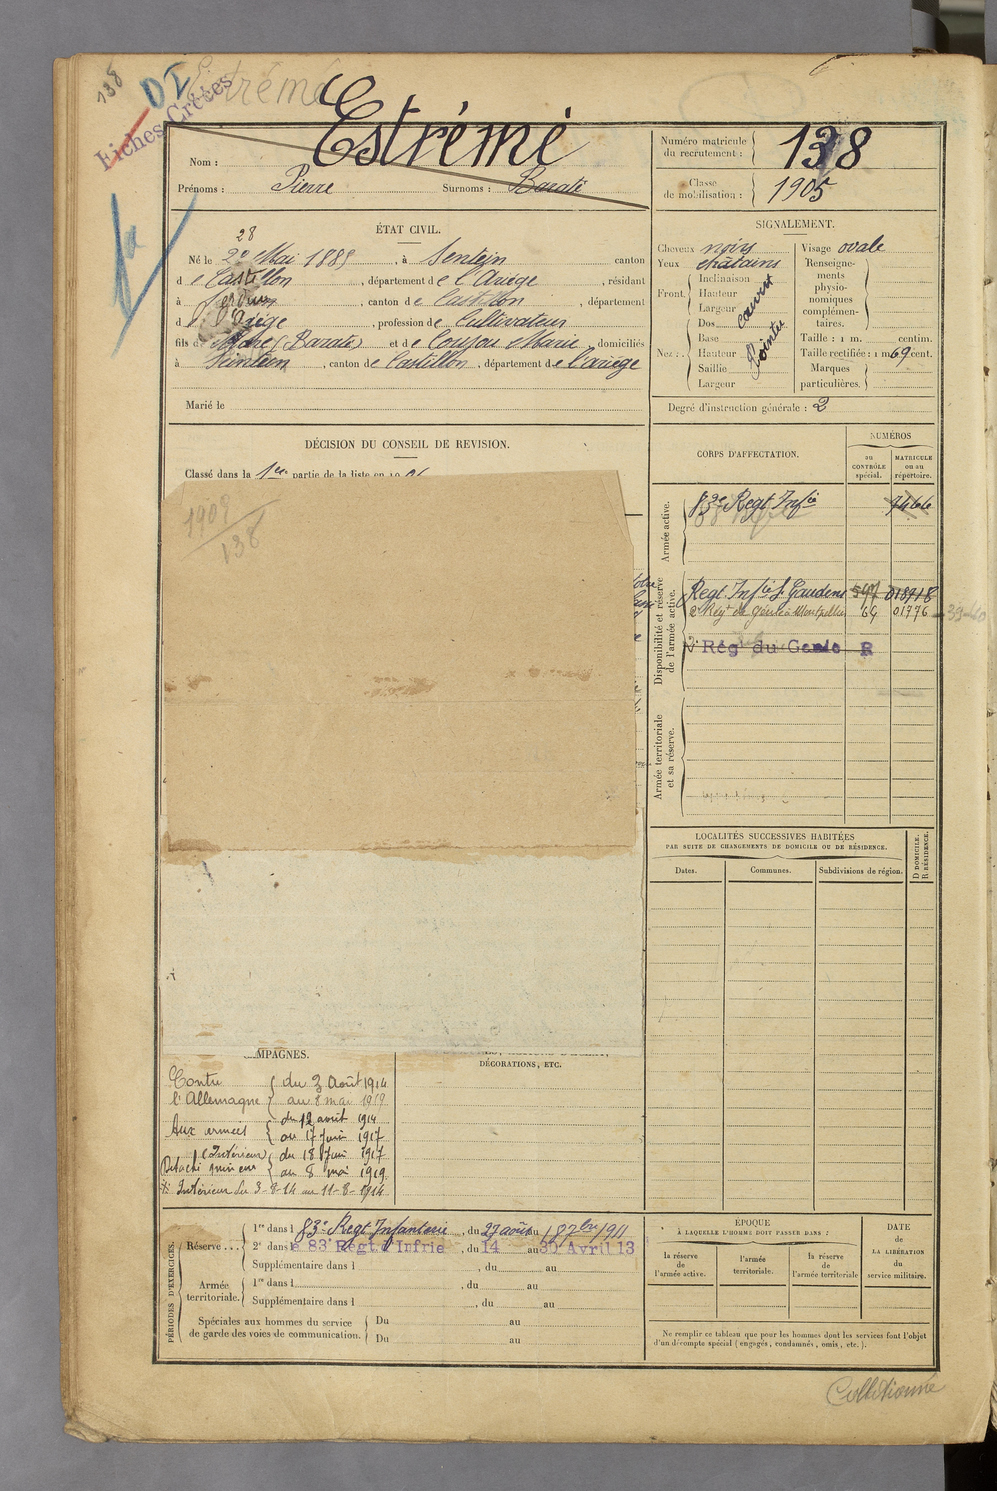 138
OI
Estréme
Fiches Créées
Nom : Estrémé
Prénoms : Pierre Surnoms : Barate
Numéro matricule du recrutement : 138
Classe de mobilisation : 1905
ÉTAT CIVIL.
28
Né le 20 Mai 1885, à Sentein canton
de Castillon, département de l'Ariège, résidant
à, canton de Castillon, département
d Ariège, profession de Cultivateur
fils de Marc (Barate) et de Coujou Marie, domiciliés
à Sentein, canton de Castillon, département de l'ariège
Marié le
SIGNALEMENT.
Cheveux noirs
Yeux chatains
Front. Inclinaison
Hauteur
Largeur
Nez : Dos cavux
Base
Hauteur Pointu
Saillie
Largeur
Visage ovale
Renseignements physionomiques complémentaires.
Taille : 1 m. centim.
Taille rectifiée : 1 m 69 cent.
Marques particulières.
Degré d'instruction générale : 2
DÉCISION DU CONSEIL DE REVISION.
Classé dans la 1re partie de la liste en 1906
1909
138
CORPS D'AFFECTATION.
NUMÉROS
au CONTRÔLE spécial.
MATRICULE ou au répertoire.
Armée active.
83e Regt Infie 7466
Disponibilité et réserve de l'armée active.
Regt Infie St Gaudens 597 018918
2e Regt de génie à Montpellier 64 01776 39-40
2e Rég du Genie R
Armée territoriale et sa réserve.
LOCALITÉS SUCCESSIVES HABITÉES
PAR SUITE DE CHANGEMENTS DE DOMICILE OU DE RÉSIDENCE.
Dates. Communes. Subdivisions de région. D DOMICILE. R RÉSIDENCE.
MPAGNES.
DÉCORATIONS, ETC.
Contre { du 3 Août 1914
l'Allemagne } au 8 mai 1919
Aux armées { du 12 avril 1914
au 17 Juin 1917
(Intérieur) { du 18 Juin 1917
Détaché mineur au 8 mai 1919
Intérieur du 3-8-14 au 11-8-1914
PÉRIODES D'EXERCICES.
Réserve... 1re dans l 83e Regt Infanterie, du 27 août au 18 7bre 1911
2e dans le 83e Régt d'Infrie, du 14 au 30 Avril 13
Supplémentaire dans l, du au
Armée territoriale. 1re dans l, du au
Supplémentaire dans l, du au
Spéciales aux hommes du service de garde des voies de communication. Du au
Du au
ÉPOQUE
À LAQUELLE L'HOMME DOIT PASSER DANS :
la réserve de l'armée active.
l'armée territoriale.
la réserve de l'armée territoriale
DATE de LA LIBÉRATION du service militaire.
Ne remplir ce tableau que pour les hommes dont les services font l'objet
d'un décompte spécial (engagés, condamnés, omis, etc.).
Collationné